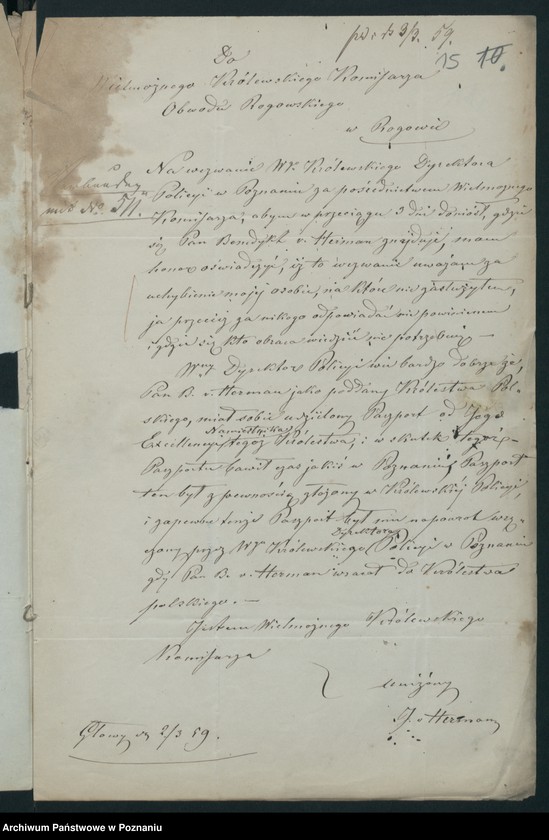 pr. 3/3. 59.
15 10.
Do
Wielmożnego Królewskiego Komisarza
Obwodu Rogowskiego
w Rogowie
Na wezwanie Wo Królewskiego Dyrektora
Policyi w Poznaniu za pośrednictwem Wielmożnego
Komisarza, abym w przeciągu 3 dni doniósł, gdzie
się Pan Benedykt v. Herman znajduje, mam
honor oświadczyć, iż to wezwanie uważam za
uchybienie mojej osobie, na które nie zasłużyłem,
ja przecież za nikogo odpowiadać nie powinienem
i gdzie się kto obraca wiedzieć nie potrzebuję —
Wny Dyrektor Policyi wie bardzo dobrze że,
Pan B. v. Herman jako poddany Królestwa Pol-
skiego, miał sobie udzielony Paszport od Jego
Namiestnika
Excellencyi tegoż Królestwa, i w skutek tegoż
Paszportu bawił czas jakiś w Poznaniu, Paszport
ten był z pewnością złożony w Królewskiej Policyi,
i zapewne tenże Paszport był mu napowrót wrę-
Dyrektora
czony przez Wo Królewskiego Policyi w Poznaniu
gdy Pan B. v. Herman wracał do Królestwa
polskiego. —
Jestem Wielmożnego Królewskiego
Komisarza
uniżony
J. v Herman
2/3 59.
No. 511.
Archiwum Państwowe w Poznaniu